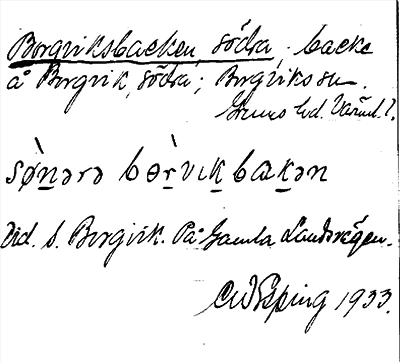 Borgviksbacken, södra, backe
å Borgvik, södra; Borgviks sn.
Grums hd. Värml. l.
sǿ̀ṉərə bə̀rvıḵbaḵən
Vid s. Borgvik. På Gamla Landsvägen.
CW Esping 1933.